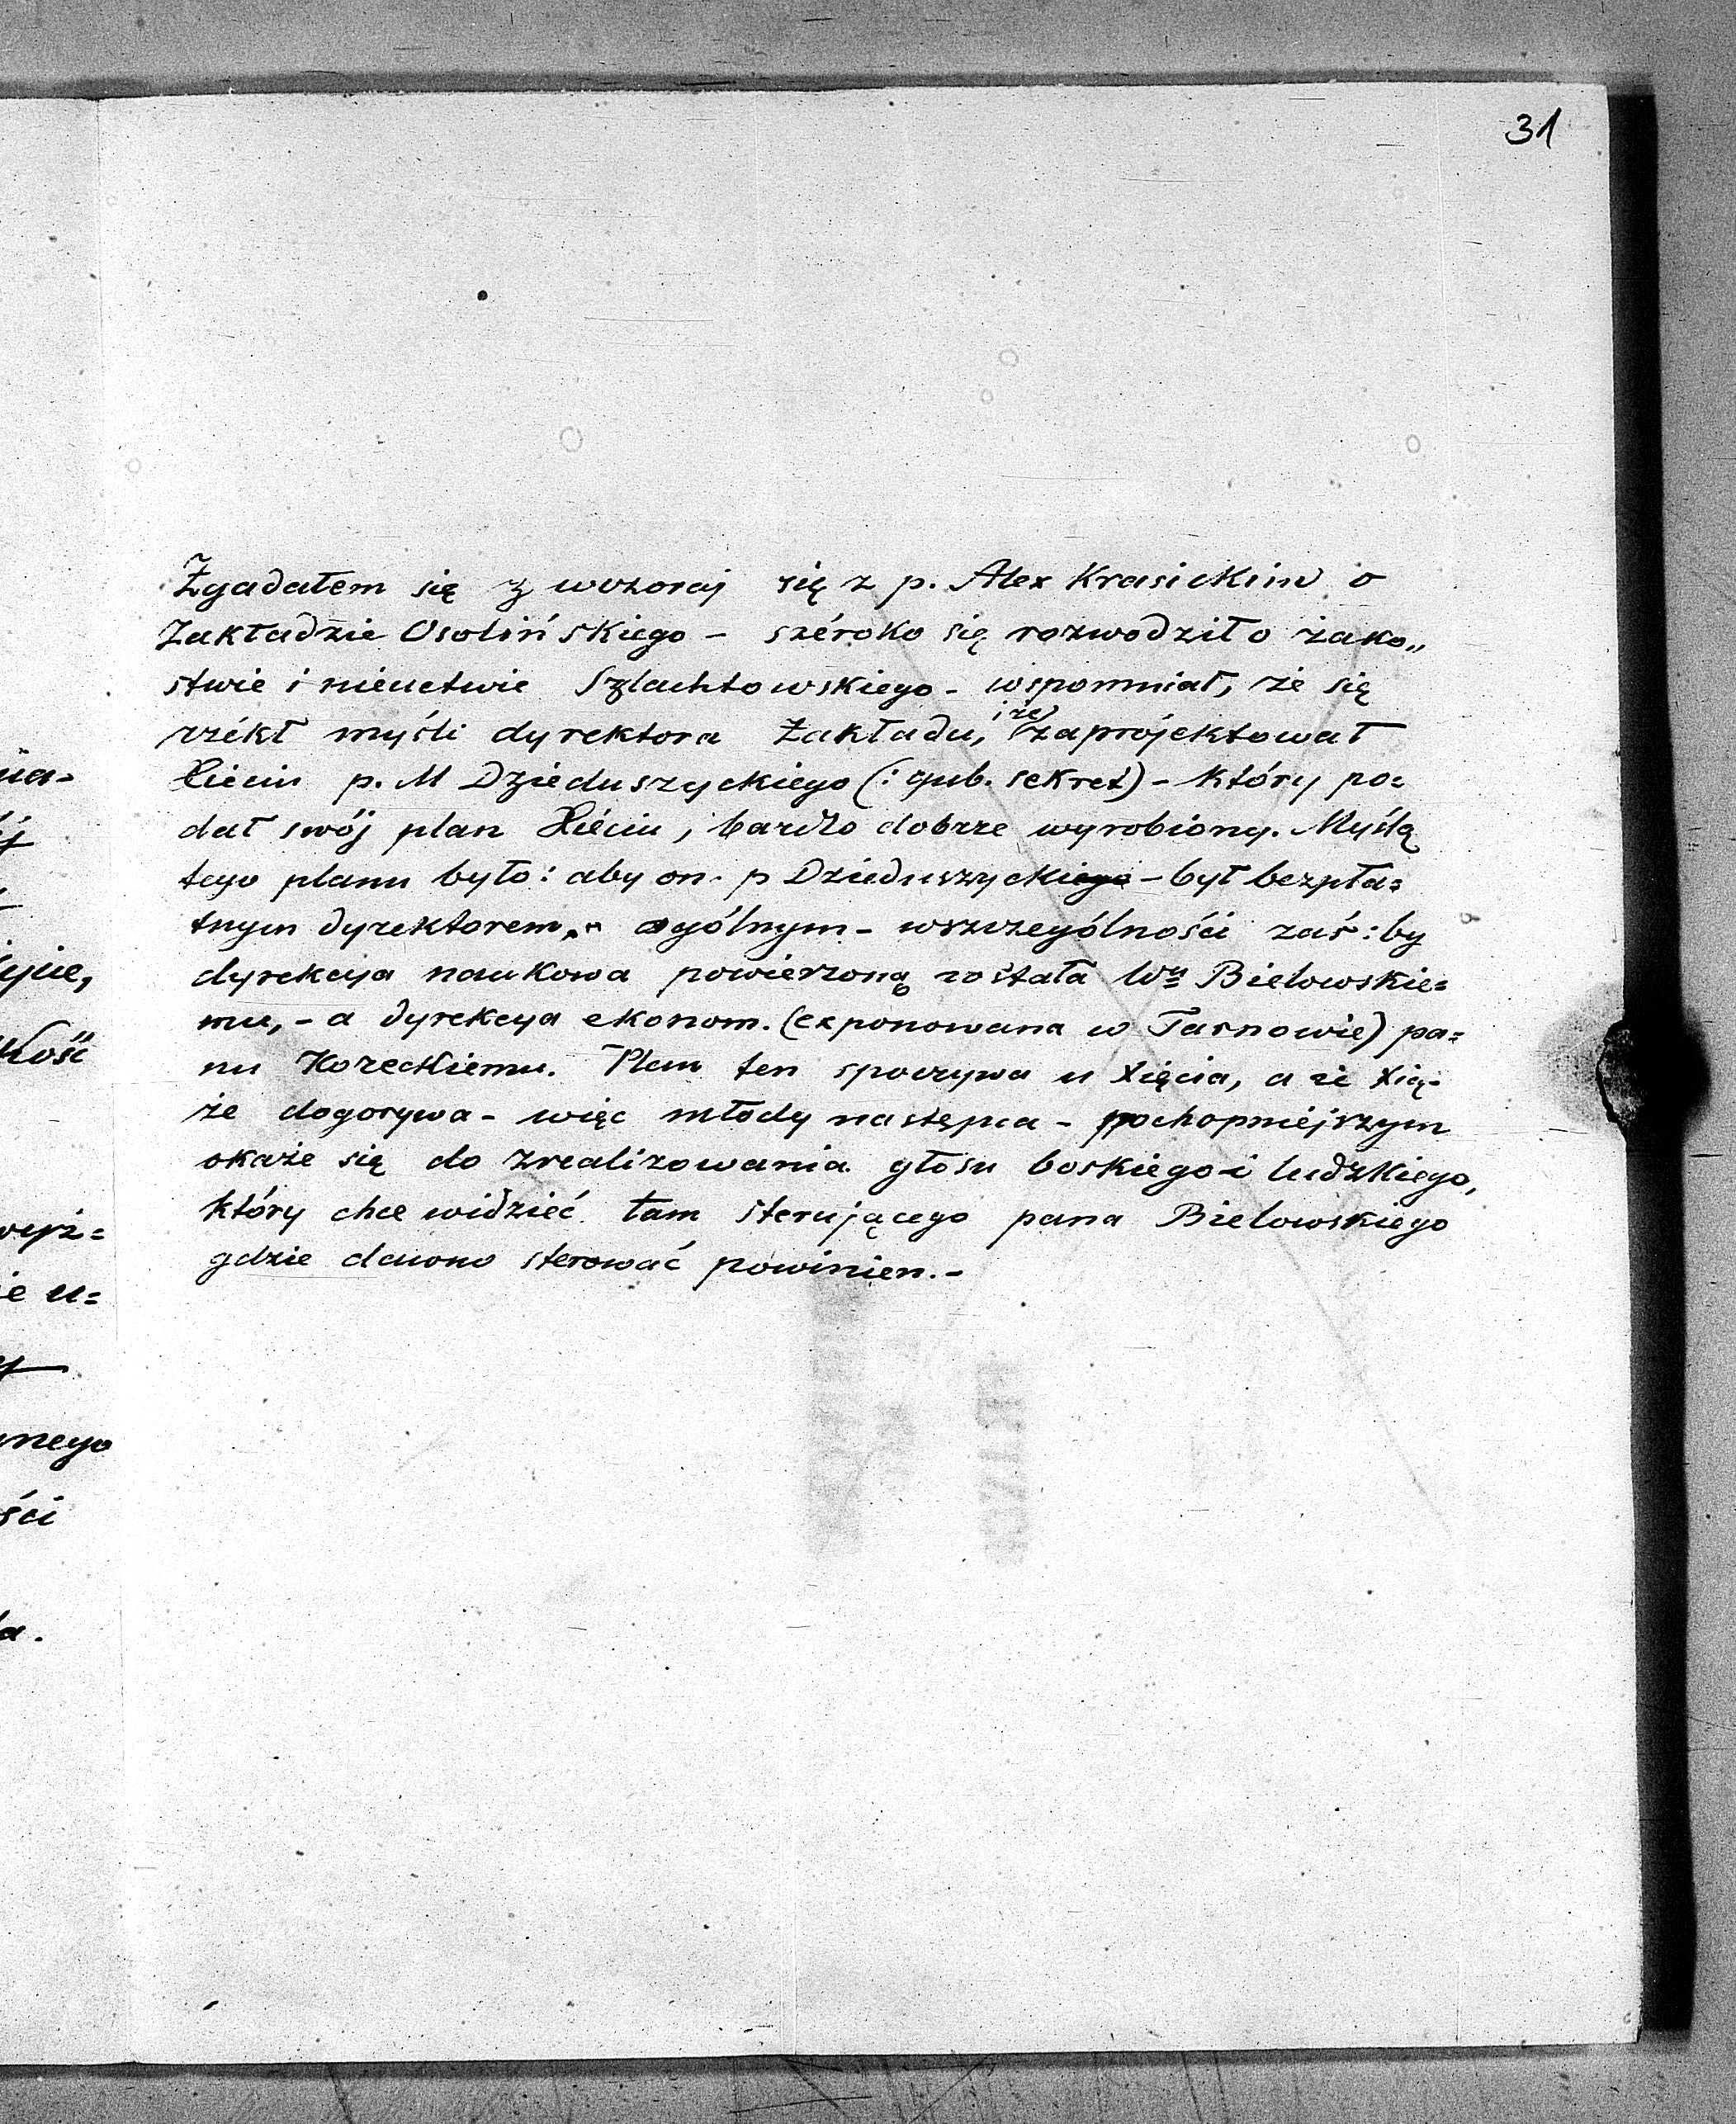 31
Zgadałem się z wczoraj się z p. Alex Krasickim o
Zakładzie Osolińskiego - széroko się rozwodził o żako„
stwie i nieuctwie Szlachtowskiego - wspomniał, że się
rzékł myśli dyrektora Zakładu, i że zaprójektował
Xięciu p. M Dzieduszyckiego (: gub. sekret) - który po=
dał swój plan Xiéciu, bardzo dobrze wyrobiony. Myślą
tego planu było: aby on. p Dzieduszyckiego - był bezpła=
tnym dyrektorem „ ogólnym - wszczególności zaś: by
dyrekcya naukowa powierzoną została Wu Bielowskie=
mu, - a dyrekcya ekonom. (exponowana w Tarnowie) pa=
nu Koreckiemu. Plan ten spoczywa u Xięcia, a że Xią=
że dogorywa - więc młody następca - pochopniéjszym
okaże się do zrealizowania głosu boskiego i ludzkiego,
który chce widziéć tam sterującego pana Bielowskiego
gdzie dawno sterować powinien. -
ia-
ój
ycie,
kość
ie u=
nego
ści
ła.